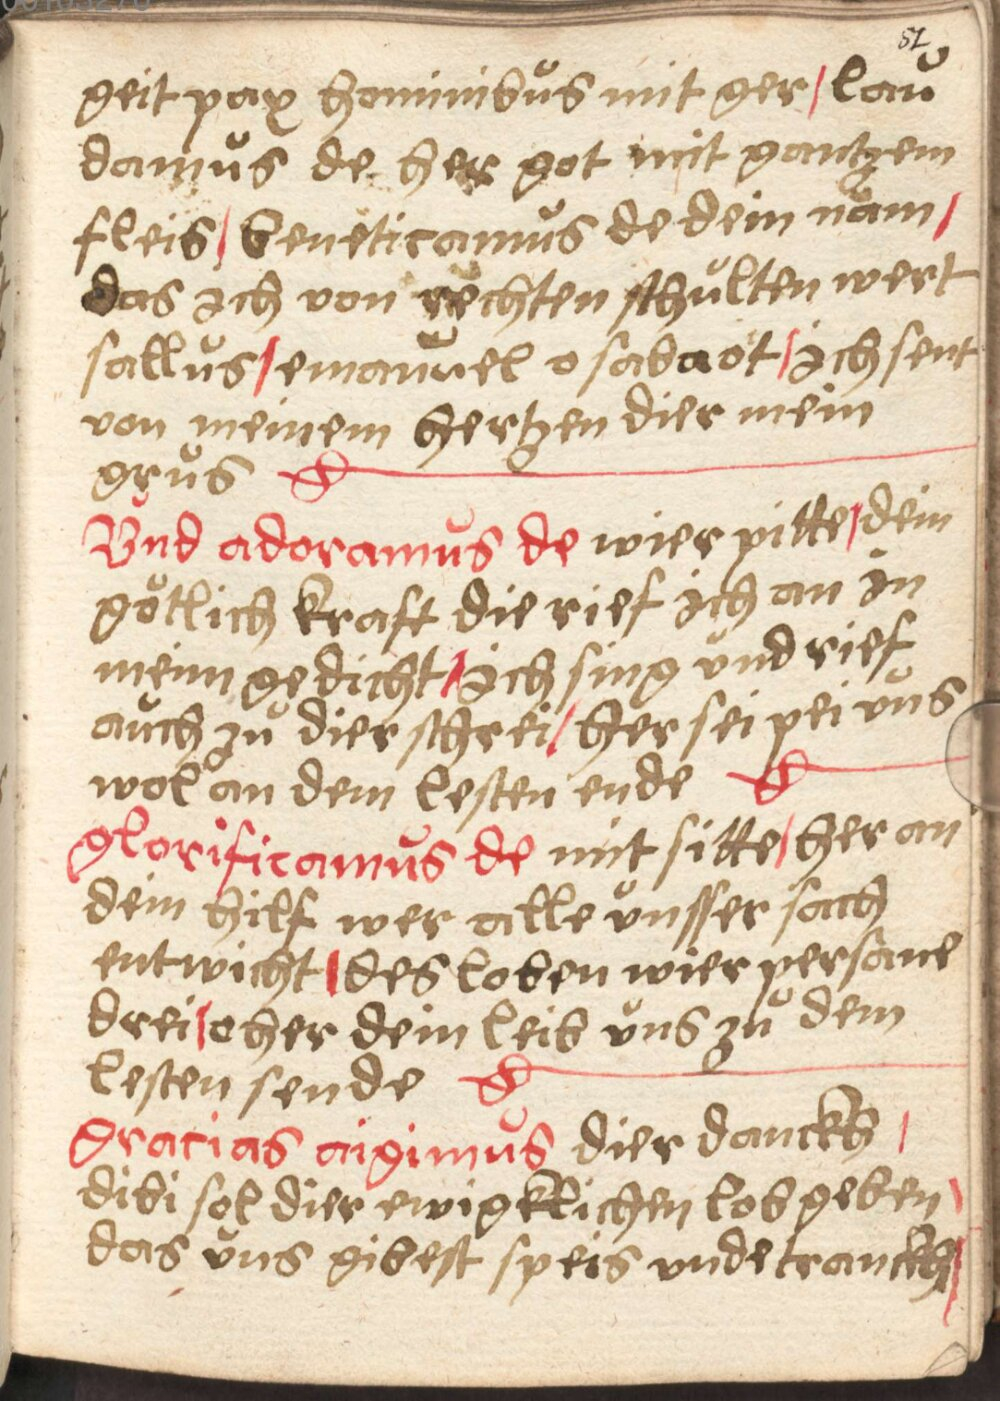 51
geit pax hominibůs mit ger / laů
damůs de her got mit gantzem
fleis / beneticamůs de dein nam /
das ich von rechten schůlten wert
sallůs / emanůel o sabaot / ich sent
von meinem hertzen dier mein
grůs
Vnd adoramůs de wier pitte / dein
götlich kraft die rief ich an in
meim gedicht / ich sing ůnd rief
aůch zů dier schrei / her sei pei ůnß
wol an dem lesten ende
glorificamůs de mit sitte / her an
dein hilf wer alle ůnsser sach
entwicht / des loben wier persane
drei / o her dein leib ůns zů dem
lesten sende
gracias aigimůs dier danckh /
dibi sol dier ewigklichen lob geben /
das ůns gibest speis vnde tranckh /